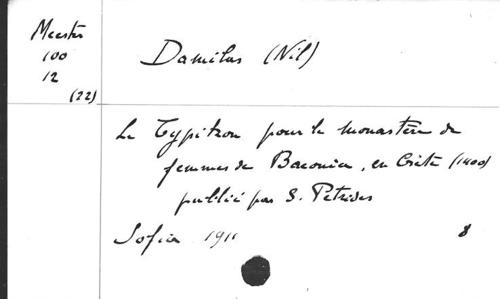 Meester
100
12
(22)
Damilas (Nil)
Le Typikon pour le monastère de
femmes de Baeonia, en Crète (1400)
publié par S. Petrides
Sofia 1911 8